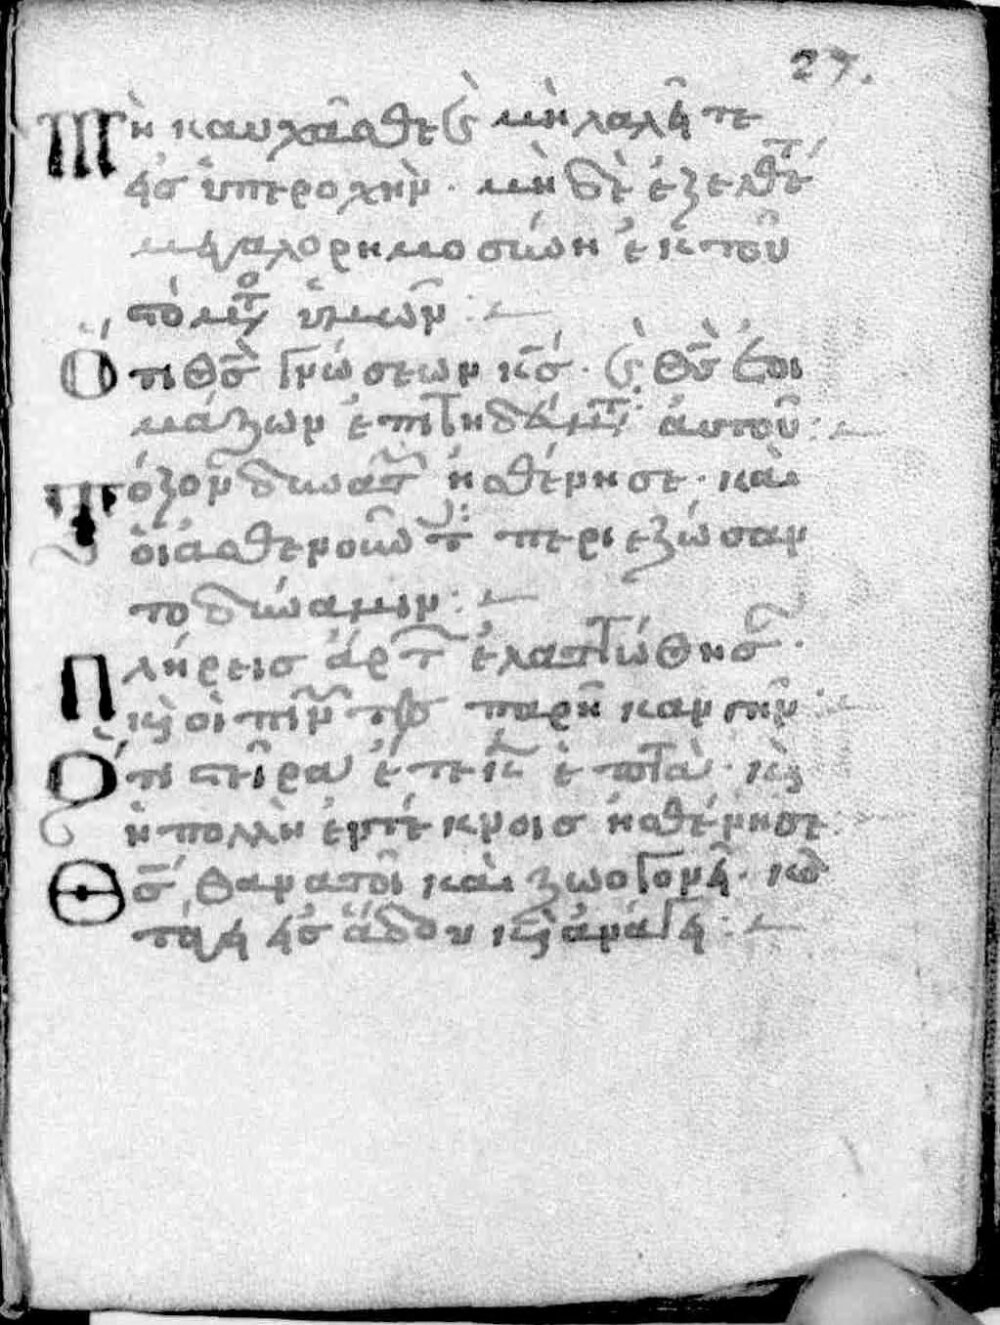 27.
Μὴ καυχᾶσθε καὶ μὴ λαλεῖτε
εἰς ὑπεροχὴν· μὴ δὲ ἐξελθέτ
μεγαλορημοσύνη ἐκ τοῦ
στόματο ὑμῶν:
Ὅτι Θς γνώσεων κς· καὶ Θς ἑτοι
μάζων ἐπιτηδεύμτ αὐτοῦ:
Τόξον δυνατ ἠσθένησε· καὶ
οἱ ἀσθενοῦντ περιεζώσαν
το δύναμιν:
Πλήρεις ἄρτ ἐλαττώθησ·
κ οἱ πινῶντ παρῆκαν γῆν:
Ὅτι στεῖρα ἔτεκ ἑπτὰ· κ
ἡ πολλὴ ἐν τέκνοις ἠσθένησε
Θς θανατοῖ καὶ ζωογονεῖ· κα
τάγει εἰς ἅδου κ ἀνάγει: